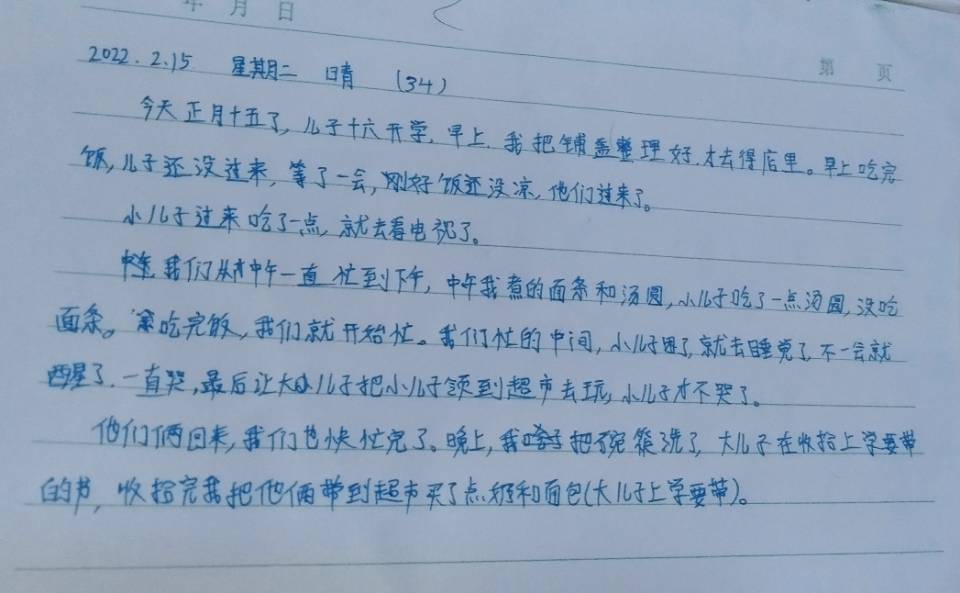 年 月 日
第 页
2022.2.15 星期二 晴 (34)
今天正月十五了,儿子十六开学,早上,我把铺盖整理好,才去得店里。早上吃完
饭,儿子还没过来,等了一会,刚好饭还没凉,他们过来了。
小儿子过来吃了一点,就去看电视了。
我们从中午一直忙到下午,中午我煮的面条和汤圆,小儿子吃了一点汤圆,没吃
面条。吃完饭,我们就开始忙。我们忙的中间,小儿子困了,就去睡觉了,不一会就
醒了,一直哭,最后让大儿子把小儿子领到超市去玩,小儿子才不哭了。
他们俩回来,我们也快忙完了。晚上,我把碗筷洗了,大儿子在收拾上学要带
的书,收拾完我把他俩带到超市买了点奶和面包(大儿子上学要带)。